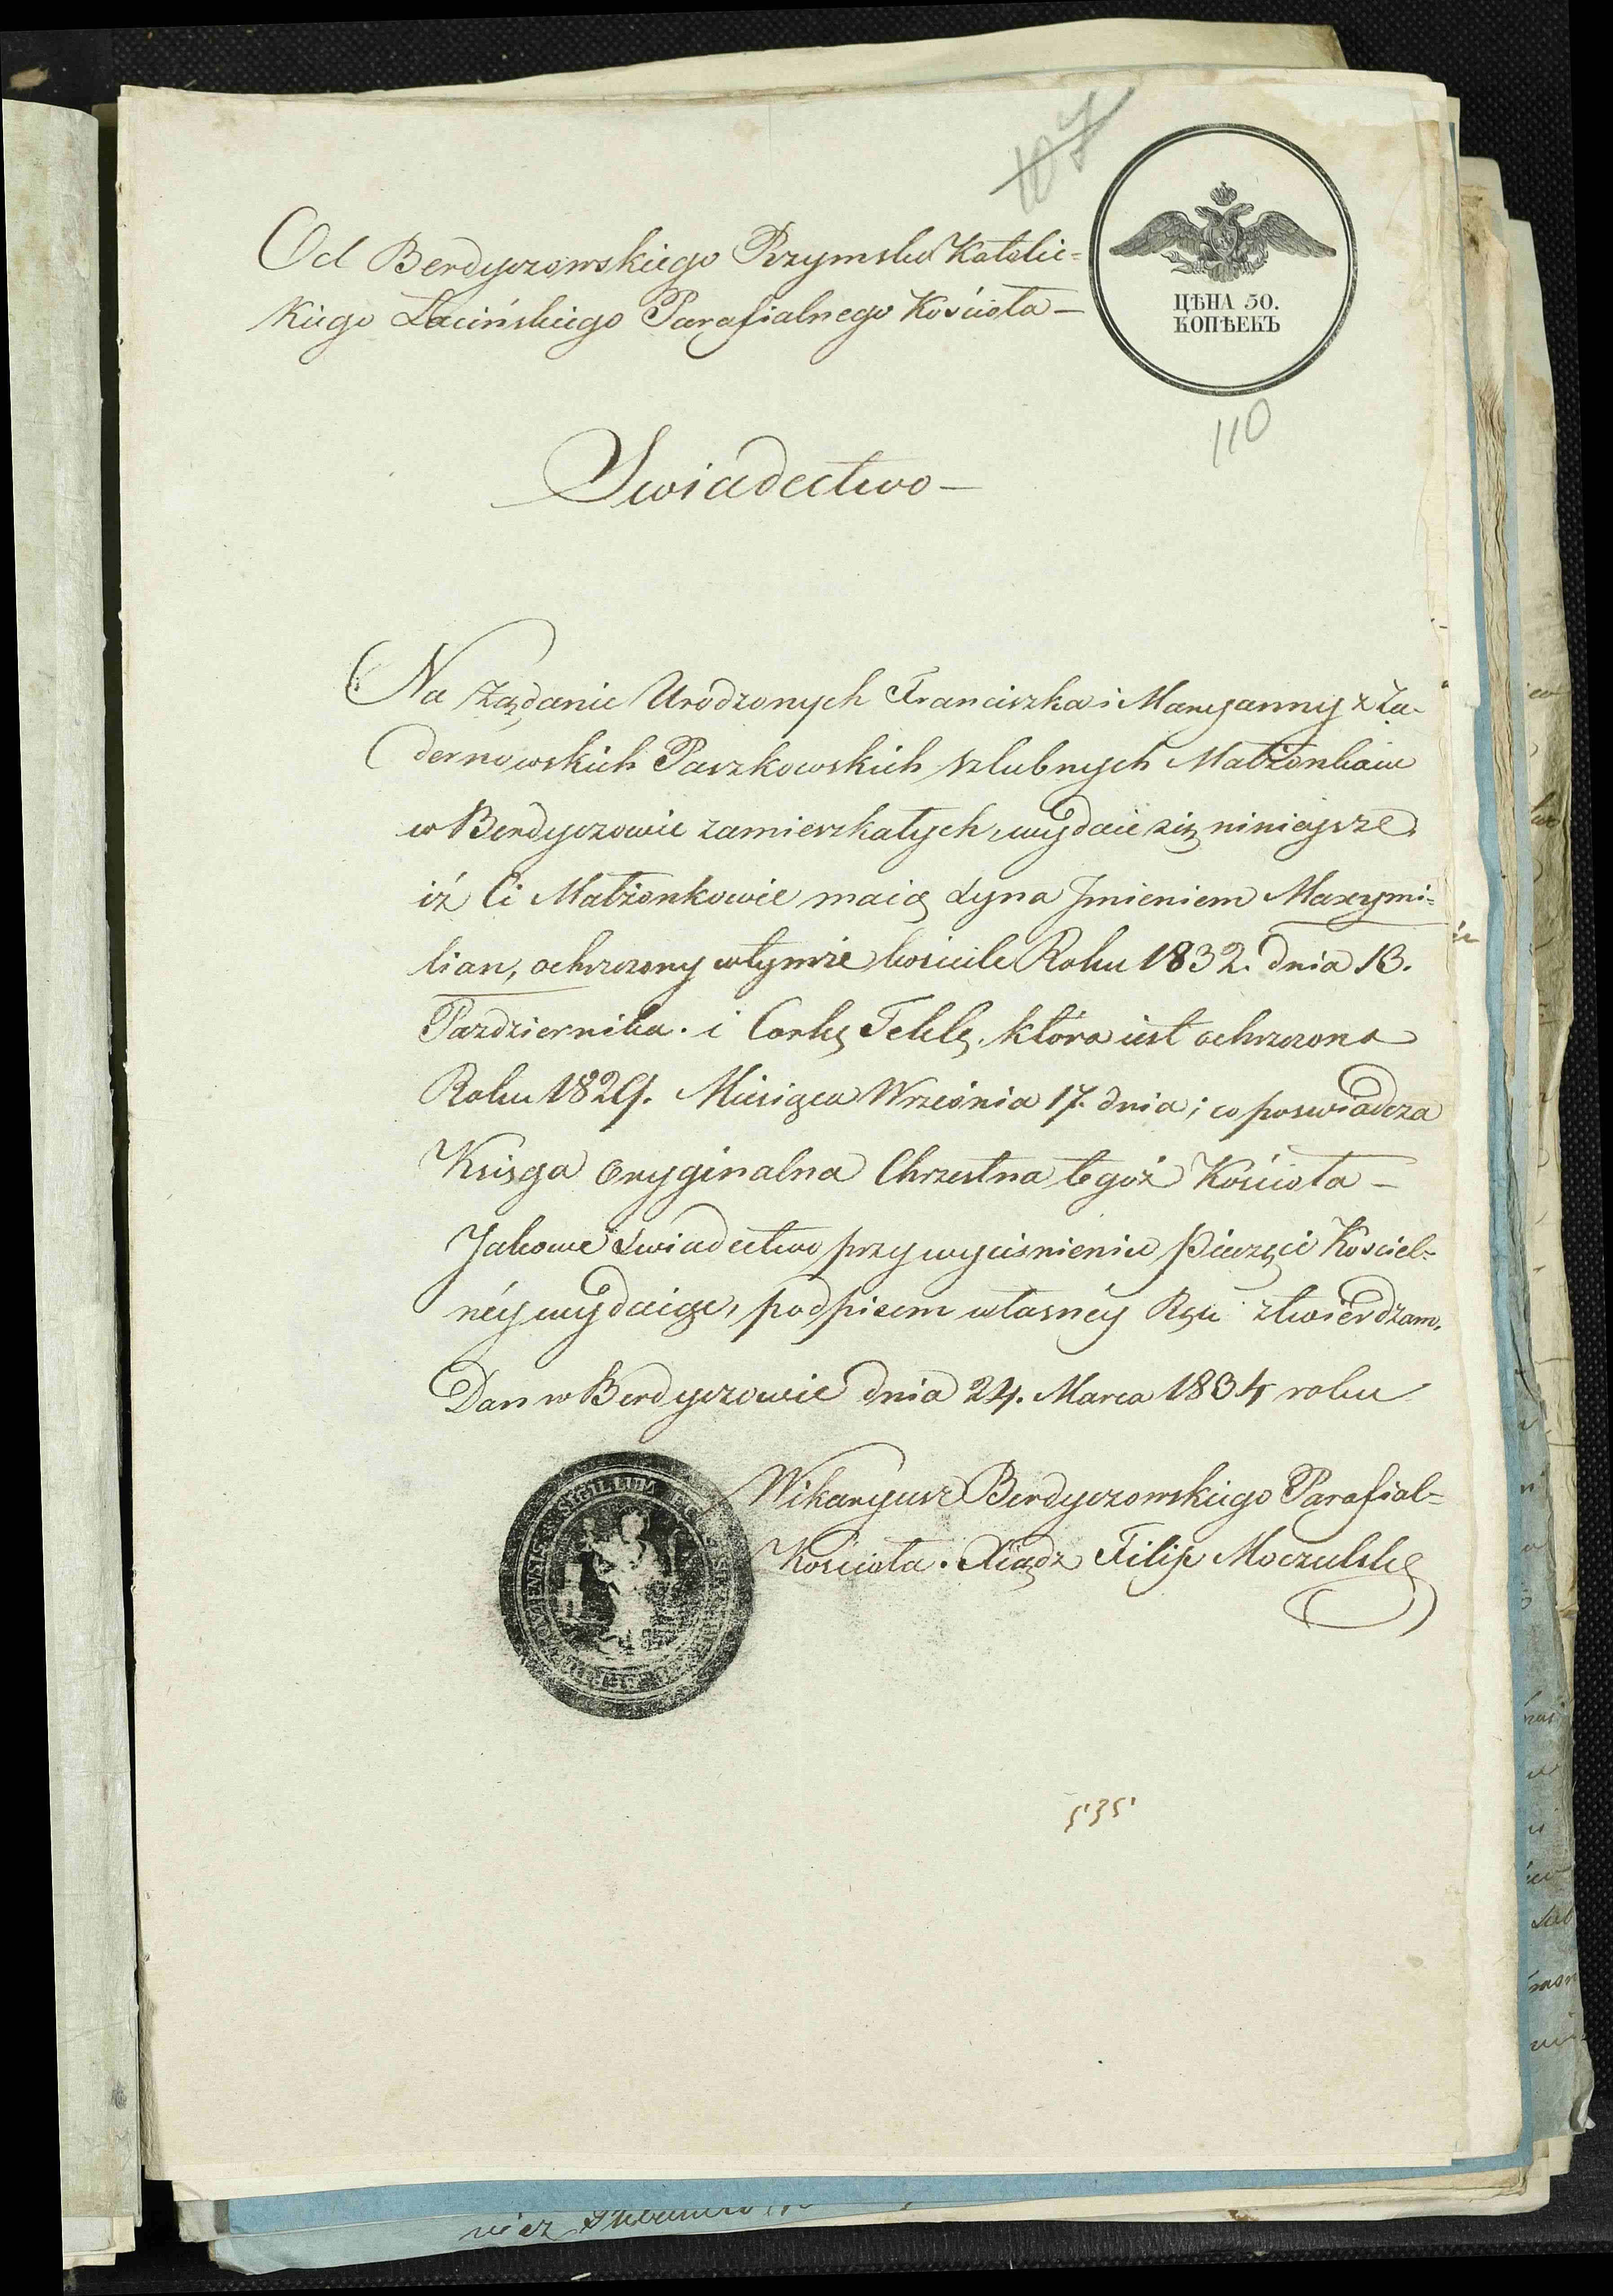 107
Od Berdyczowskiego Rzymsko Katolic=
kiego Łacińskiego Parafialnego Kościoła —
ЦѢНА 50.
КОПѢЕКЪ
110
Swiadectwo —
Na żądanie Urodzonych Franciszka i Maryanny z Za-
dernowskich Paszkowskich szlubnych Małżonków
w Berdyczowie zamieszkałych, wydaie się ninieysze,
iż Ci Małżonkowie maią Syna Jmieniem Maxymi=
lian, ochrzczony w tymże kościele Roku 1832. dnia 13.
Pazdziernika. i Corkę Teklę, która iest ochrzczona
Roku 1829. Miesiąca Września 17. dnia; co poswiadcza
Księga Oryginalna Chrzestna tegoż Kościoła —
Jakowe Swiadectwo przy wyciśnieniu Pieczęci Kościel=
néy wydaiąc, podpisem własnéy Ręki ztwierdzam.
Dan w Berdyczowie dnia 24. Marca 1834 roku
SIGILLUM
Wikaryusz Berdyczowskiego Parafial=
Kościoła. Xiądz Filip Moczulski